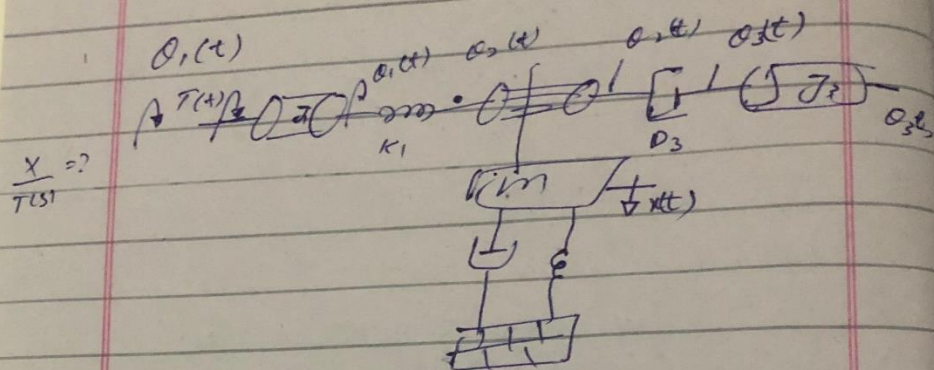 θ₁(t)
T(t) θ₁(t) θ₂(t) θ₂(t) θ₃(t)
J
K₁
D₃
X/T(S) =?
m
x(t)